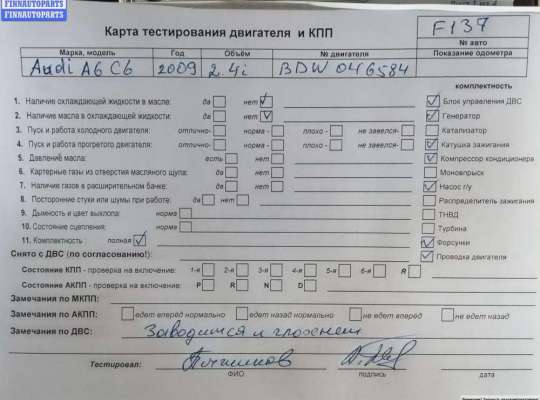 FINNAUTOPARTS
FINNAUTOPARTS
Карта тестирования двигателя и КПП
F137
№ авто
Марка, модель Год Объём № двигателя Показание одометра
Audi A6 C6 2009 2.4i BDW 046584
комплектность
1. Наличие охлаждающей жидкости в масле: да нет Блок управления ДВС
2. Наличие масла в охлаждающей жидкости: да нет Генератор
3. Пуск и работа холодного двигателя: отлично- норма - плохо - не завелся- Катализатор
4. Пуск и работа прогретого двигателя: отлично- норма - плохо - не завелся- Катушка зажигания
5. Давление масла: есть нет Компрессор кондиционера
6. Картерные газы из отверстия масляного щупа: да нет Моновпрыск
7. Наличие газов в расширительном бачке: да нет Насос г/у
8. Посторонние стуки или шумы при работе: да нет Распределитель зажигания
9. Дымность и цвет выхлопа: норма ТНВД
10. Состояние сцепления: норма Турбина
11. Комплектность : полная Форсунки
Снято с ДВС (по согласованию!): Проводка двигателя
Состояние КПП - проверка на включение: 1-я 2-я 3-я 4-я 5-я 6-я R
Состояние АКПП - проверка на включение: P R N D
Замечания по МКПП:
Замечания по АКПП: едет вперёд нормально едет назад нормально не едет вперёд не едет назад
Замечания по ДВС: Заводится и глохнет
Тестировал:
ФИО подпись дата